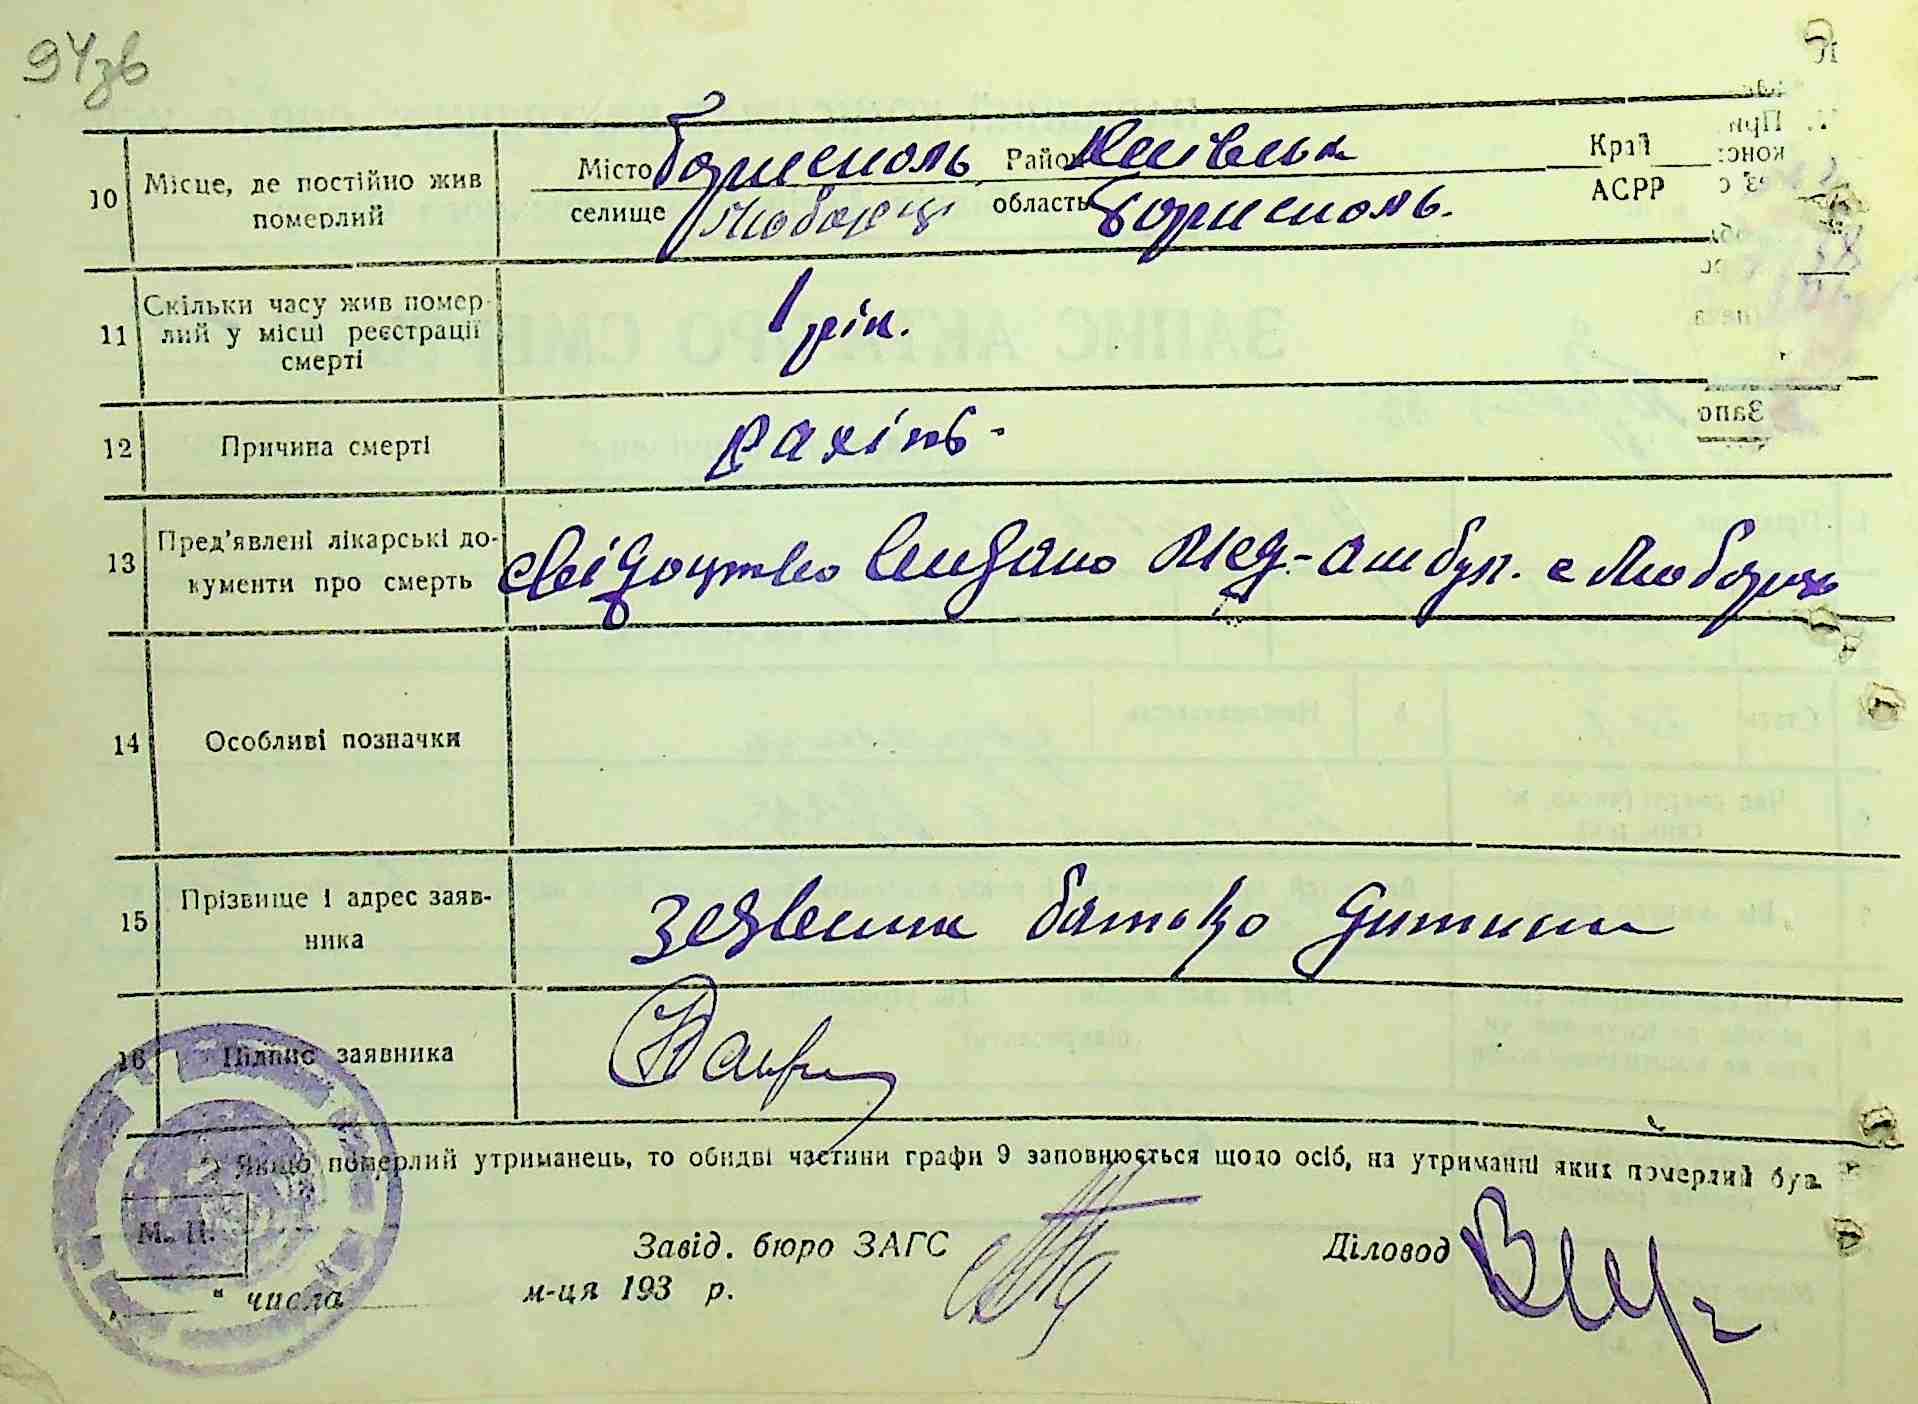 94зв
10 Місце, де постійно жив померлий Місто Борисполь Район Київська Край
селище Любарці область Борисполь. АСРР
11 Скільки часу жив помер-
лий у місці реєстрації
смерті 1 рік.
12 Причина смерті рахіт
13 Пред'явлені лікарські до-
кументи про смерть свідоцтво видано Мед-амбул. с Любарці
14 Особливі позначки
15 Прізвище і адрес заяв-
ника заявник батько дитини
16 Підпис заявника
Якщо померлий утриманець, то обидві частини графи 9 заповнюється щодо осіб, на утриманні яких померлий був.
М. П.
Завід. бюро ЗАГС Діловод
" числа м-ця 193 р.